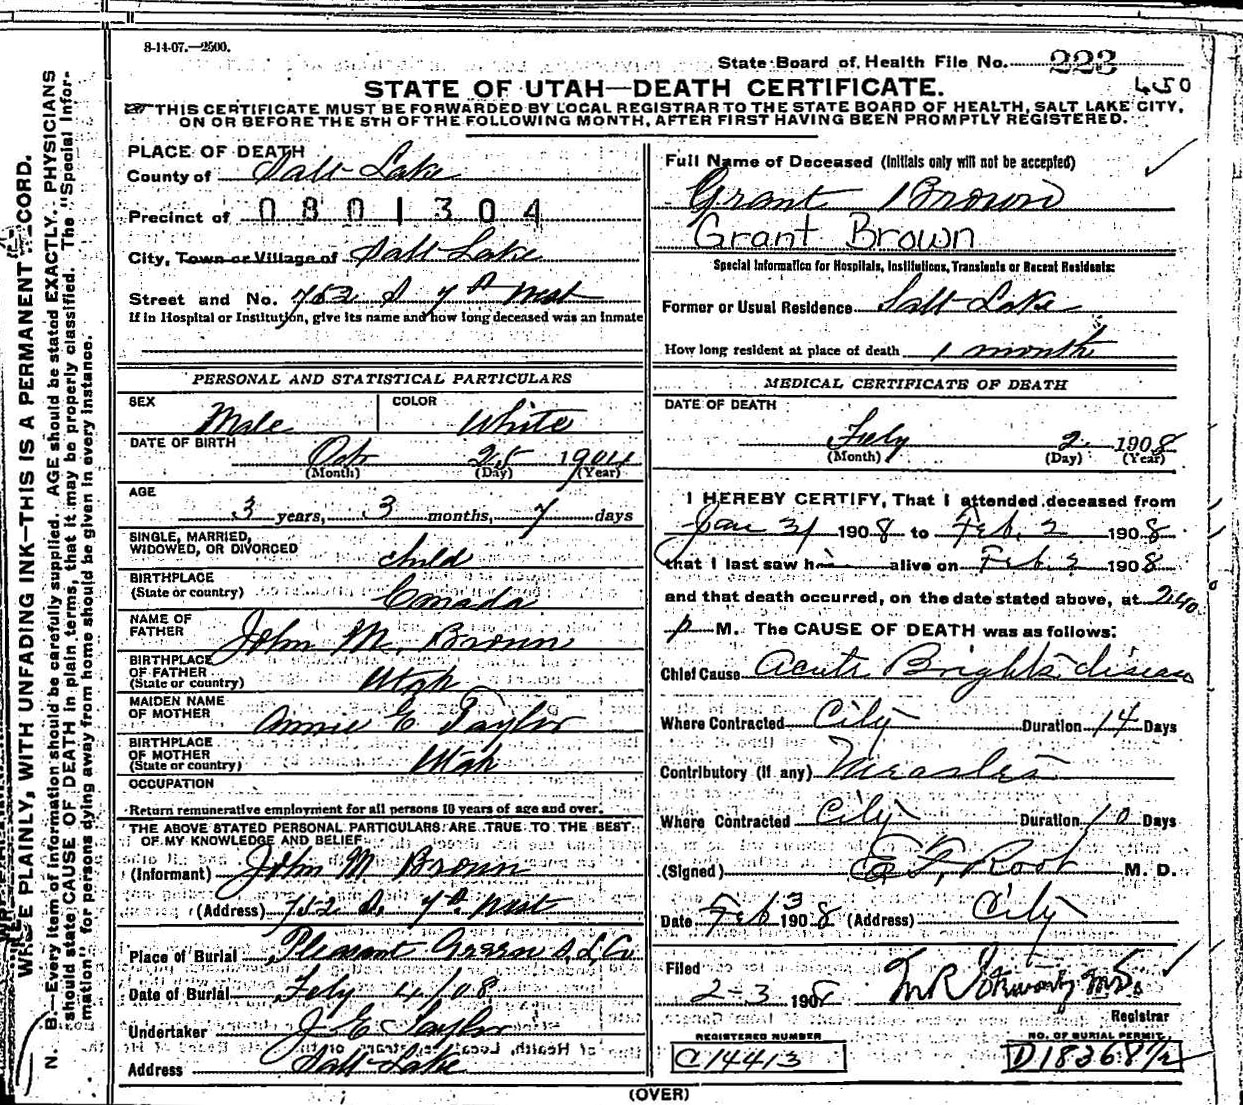 8-14-07.—2500.
State Board of Health File No. 223
450
STATE OF UTAH—DEATH CERTIFICATE.
THIS CERTIFICATE MUST BE FORWARDED BY LOCAL REGISTRAR TO THE STATE BOARD OF HEALTH, SALT LAKE CITY,
ON OR BEFORE THE 5TH OF THE FOLLOWING MONTH, AFTER FIRST HAVING BEEN PROMPTLY REGISTERED.
PLACE OF DEATH
County of Salt Lake
Precinct of 0801304
City, Town or Village of Salt Lake
Street and No. 752 S 7th West
If in Hospital or Institution, give its name and how long deceased was an inmate
Full Name of Deceased (Initials only will not be accepted)
Grant Brown
Grant Brown
Special Information for Hospitals, Institutions, Transients or Recent Residents:
Former or Usual Residence Salt Lake
How long resident at place of death 1 month
PERSONAL AND STATISTICAL PARTICULARS
SEX Male COLOR White
DATE OF BIRTH Oct 25 1904
(Month) (Day) (Year)
AGE
3 years, 3 months, 7 days
SINGLE, MARRIED,
WIDOWED, OR DIVORCED child
BIRTHPLACE
(State or country) Canada
NAME OF
FATHER John M. Brown
BIRTHPLACE
OF FATHER
(State or country) Utah
MAIDEN NAME
OF MOTHER Annie E Taylor
BIRTHPLACE
OF MOTHER
(State or country) Utah
OCCUPATION
Return remunerative employment for all persons 10 years of age and over.
THE ABOVE STATED PERSONAL PARTICULARS ARE TRUE TO THE BEST
OF MY KNOWLEDGE AND BELIEF
(Informant) John M Brown
(Address) 752 S. 7th West
Place of Burial Pleasant Green S. L. Co
Date of Burial Feby 4/08
Undertaker J E Taylor
Address Salt Lake
MEDICAL CERTIFICATE OF DEATH
DATE OF DEATH
Feby 2 1908
(Month) (Day) (Year)
I HEREBY CERTIFY, That I attended deceased from
Jan 31 1908 to Feb. 2 1908
that I last saw him alive on Feb. 2 1908
and that death occurred, on the date stated above, at 2.40
p M. The CAUSE OF DEATH was as follows:
Chief Cause Acute Brights disease
Where Contracted City Duration 14 Days
Contributory (if any) Measles
Where Contracted City Duration 10 Days
(Signed) E F, Root M. D.
Date Feb 3 1908 (Address) City
Filed
2-3 1908
Registrar
REGISTERED NUMBER
C14413
NO. OF BURIAL PERMIT
D18368 1/2
(OVER)
WRITE PLAINLY, WITH UNFADING INK—THIS IS A PERMANENT RECORD.
N. B.—Every item of information should be carefully supplied. AGE should be stated EXACTLY. PHYSICIANS
should state CAUSE OF DEATH in plain terms, that it may be properly classified. The "Special Infor-
mation" for persons dying away from home should be given in every instance.